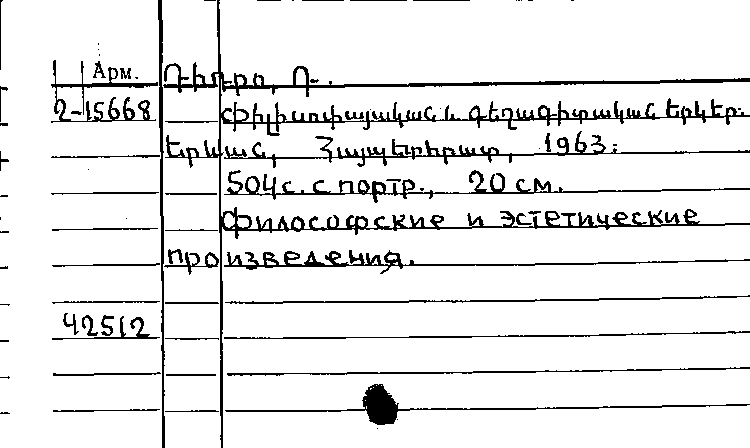 Арм.
Դիդրո, Դ.
2-15668
Փիլիսոփայական և գեղագիտական երկեր.
Երևան, Հայպետհրատ, 1963:
504с. с портр., 20 см.
Философские и эстетические
произведения.
42512